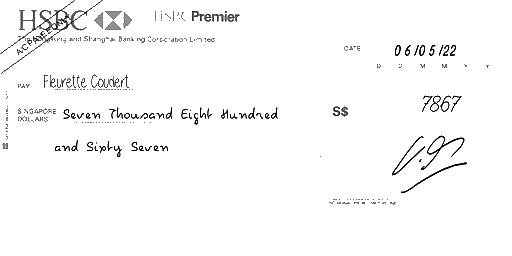 HSBC HSBC Premier
A/C PAYEE ONLY
The Hongkong and Shanghai Banking Corporation Limited
DATE 06/05/22
D D M M Y Y
PAY Fleurette Coudert
SINGAPORE DOLLARS Seven Thousand Eight Hundred
S$ 7867
and Sixty Seven